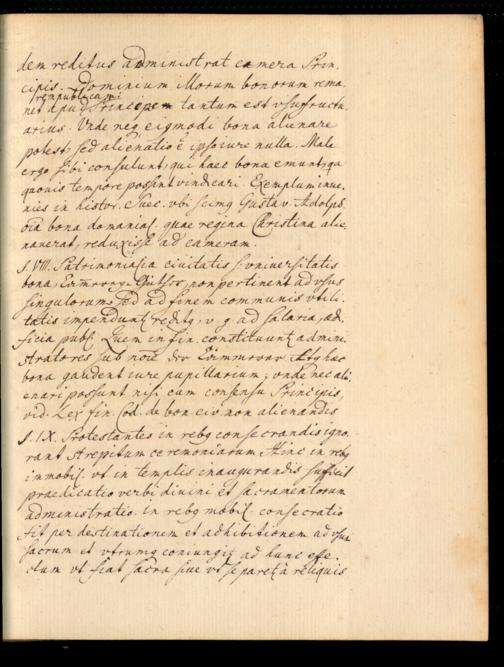 dem reditus administrat camera Prin-
cipis. Dominium illorum bonorum rema-
rempublicam
net apud Principem tantum est usufructu-
arius. Unde neq eiusmodi bona alienare
potest sed alienatio e ipso iure nulla. Male
ergo sibi consulunt, qui haec bona emunt, qa
quovis tempore possunt vindicari. Exemplum inve-
nies in histor. Suec. ubi scimq Gustav. Adolph.
oia bona domanial. quae regina Christina alie-
naverat, reduxisse ad cameram.
§. VIII. Patrimonialia civitatis s. universitatis
bona non pertinent ad usus
singulorum, sed ad finem communis utili-
tatis impendunt reditq, v. g. ad salaria, aed-
ificia publ. Quem in fin. constituunt admini-
stratores sub noie der Atq haec
bona gaudent iure pupillarium, unde nec ali-
enari possunt nisi cum consensu Principis,
vid. Lex fin. Cod. de bon. civ. non alienandis
§. IX. Protestantes in rebq consecrandis igno-
rant strepitum ceremoniarum. Hinc in rebq
immobil. ut in templis inaugurandis sufficit
praedicatio verbi divini et sacramentorum
administratio. in rebq mobil. consecratio
fit per destinationem et adhibitionem ad usum
sacrum et utrumq coniungit ad hunc effe-
ctum ut fiat sacra sive ut separet a reliquis